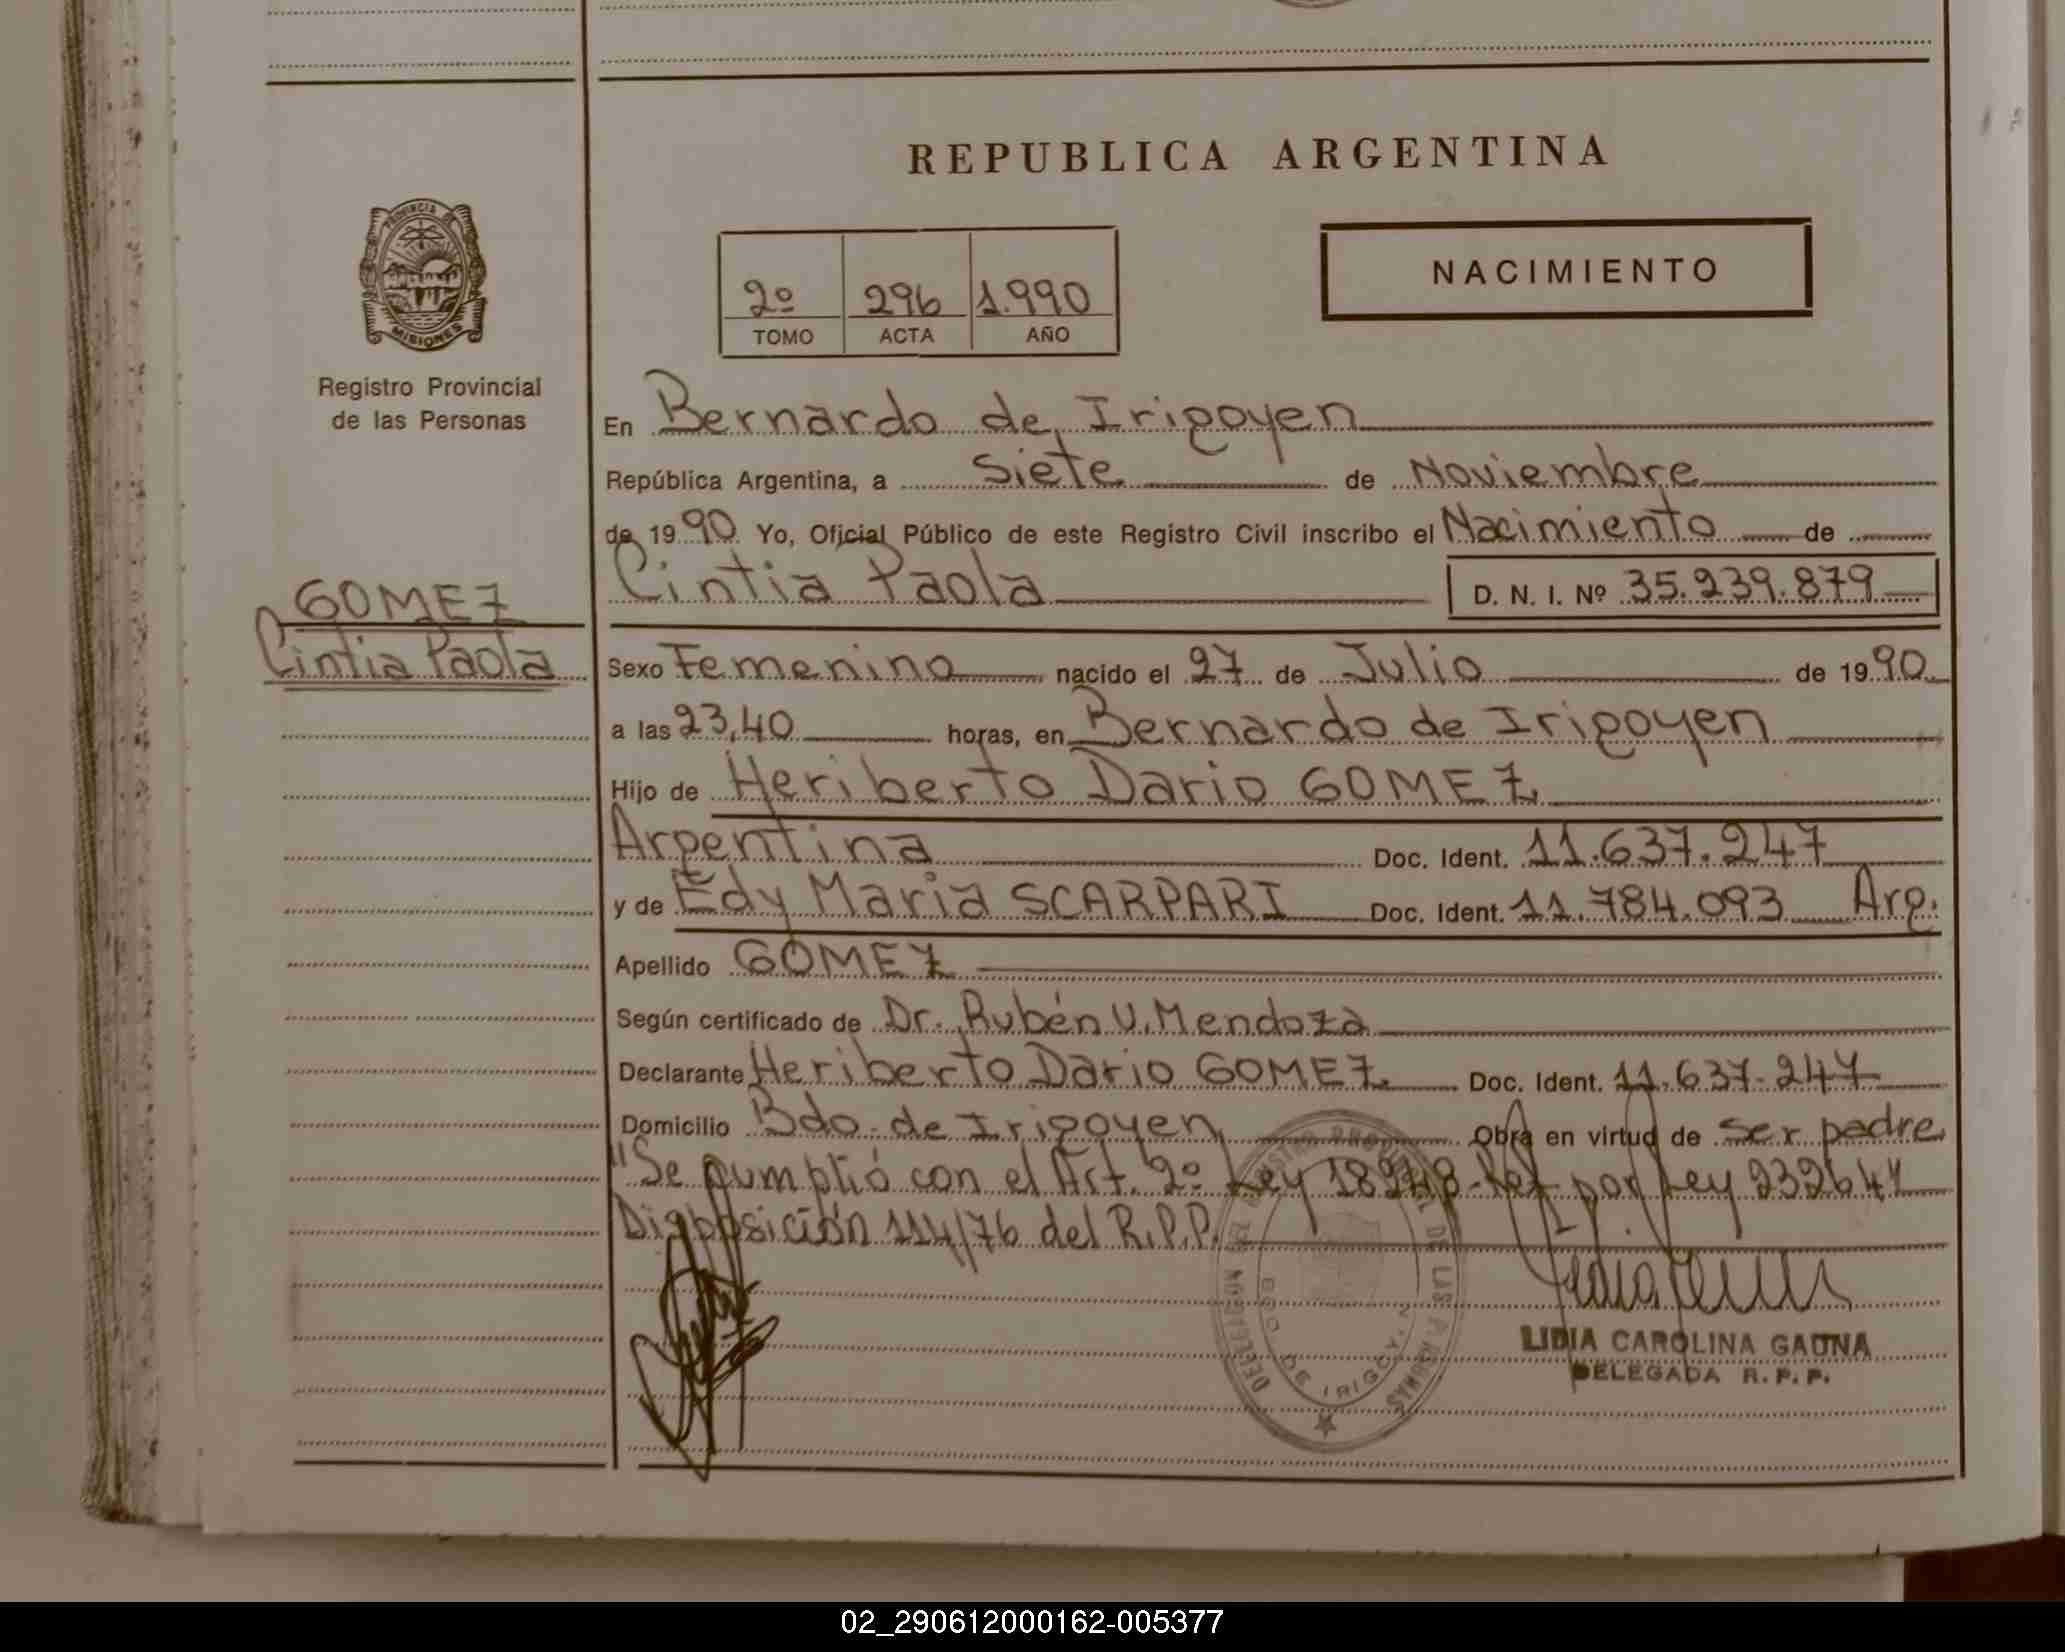 REPUBLICA ARGENTINA
PROVINCIA DE
MISIONES
Registro Provincial
de las Personas
2º 296 1.990
TOMO ACTA AÑO
NACIMIENTO
En Bernardo de Irigoyen
República Argentina, a siete de Noviembre
de 1990 Yo, Oficial Público de este Registro Civil inscribo el Nacimiento de
Cintia Paola D. N. I. Nº 35.239.879
GOMEZ
Cintia Paola
Sexo Femenino nacido el 27 de Julio de 1990
a las 23,40 horas, en Bernardo de Irigoyen
Hijo de Heriberto Dario GOMEZ
Argentina Doc. Ident. 11.637.247
y de Edy Maria SCARPARI Doc. Ident. 11.784.093 Arg.
Apellido GOMEZ
Según certificado de Dr. Rubén U. Mendoza
Declarante Heriberto Dario GOMEZ. Doc. Ident. 11.637.247
Domicilio Bdo. de Irigoyen Obra en virtud de ser padre
"Se cumplió con el Art. 2º Ley 18248 por Ley 23264
Disposición 114/76 del R.P.P.
DELEGACION DEL REGISTRO PROVINCIAL DE LAS PERSONAS
BDO DE IRIGOYEN
LIDIA CAROLINA GAUNA
DELEGADA R. P. P.
02_290612000162-005377